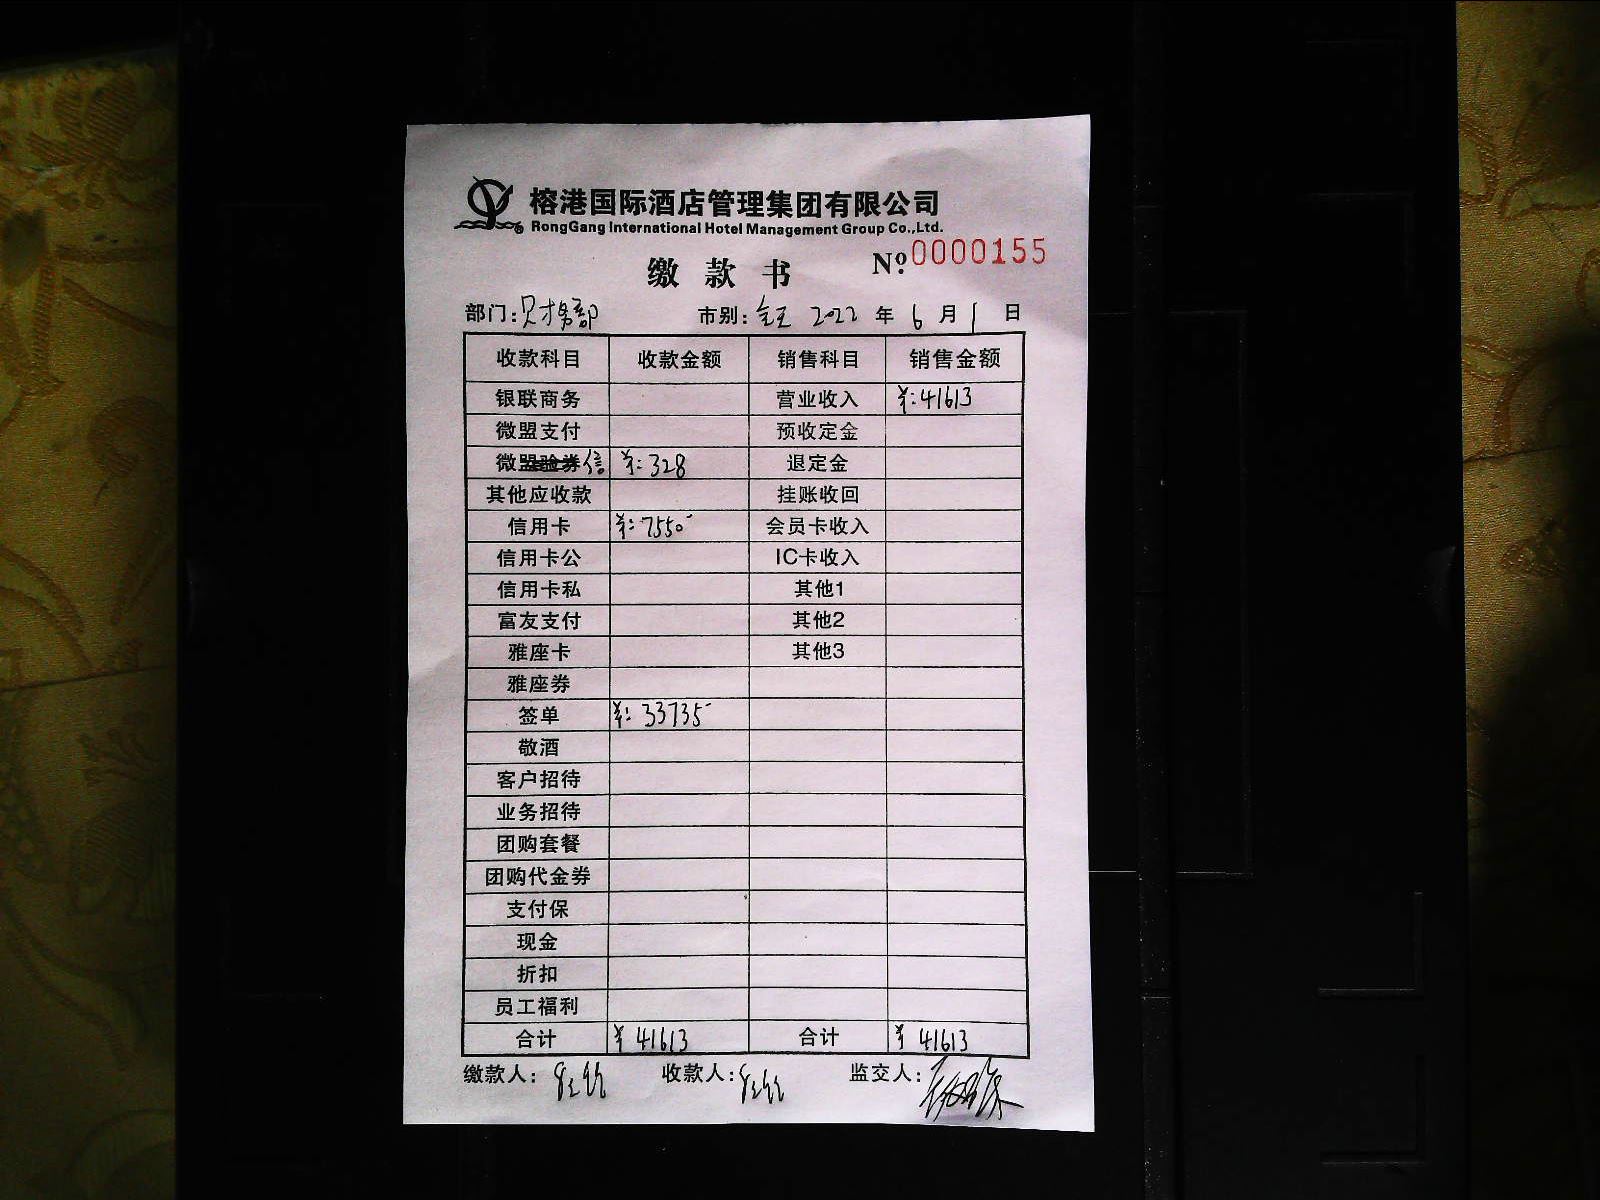 榕港国际酒店管理集团有限公司
RongGang International Hotel Management Group Co.,Ltd.
缴款书 №0000155
部门:财务部 市别: 2022年6月1日
收款科目 收款金额 销售科目 销售金额
银联商务 营业收入 ¥:41613
微盟支付 预收定金
微信 ¥:328 退定金
其他应收款 挂账收回
信用卡 ¥:7550 会员卡收入
信用卡公 IC卡收入
信用卡私 其他1
富友支付 其他2
雅座卡 其他3
雅座券
签单 ¥:33735
敬酒
客户招待
业务招待
团购套餐
团购代金券
支付保
现金
折扣
员工福利
合计 ¥41613 合计 ¥41613
缴款人: 收款人: 监交人: